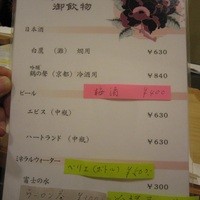 御飲物
日本酒
白鹿 (燗) 燗用 ¥630
吟醸 鶴の聲 (京都) 冷酒用 ¥840
ビール
梅酒
エビス (中瓶) ¥630
ハートランド (中瓶) ¥630
ミネラルウォーター
ペリエ
富士の水 ¥300